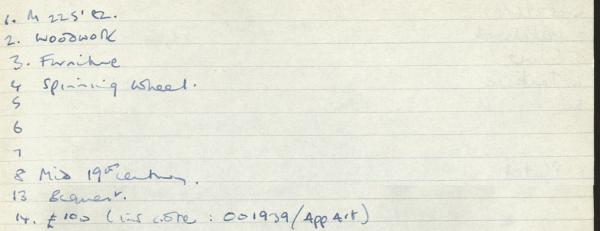 1. M 225'82.
2. WOODWORK
3. Furniture
4 Spinning Wheel.
5
6
7
8 Mid 19th century.
13 Bequest.
14. £100 (ins core : 001939/App Art)